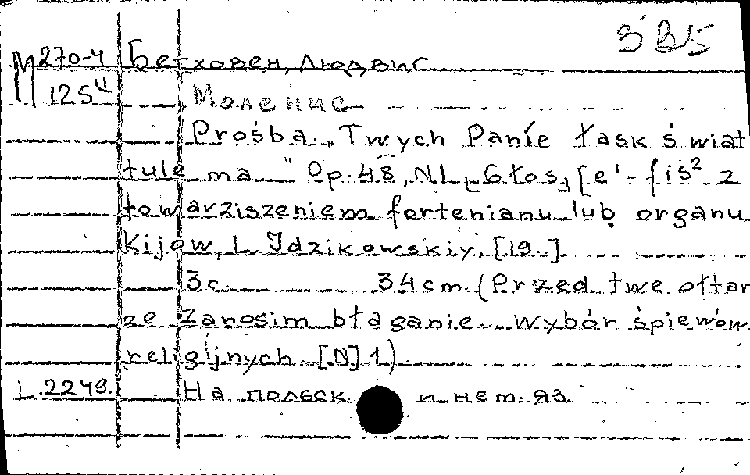 3 B15
M 270-4 Бетховен, Людвиг
125 4 Моление
Prośba „Twych Panie łask świat
tule ma..." Op. 48, N1 [Głos] [e¹-fis² z
towarziszeniem fortenianu lub organu
Kijow, L. Idzikowskiy, [19..]
3 c. 34 cm. (Przed twe ołtar
ze Zanosim błaganie. Wybór śpiewów
religijnych [N] 1)
L. 2249. На польск. и нем. яз.